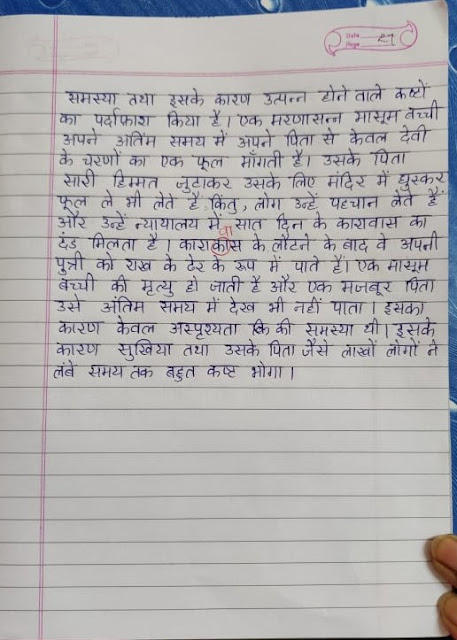 Date
Page 29
समस्या तथा इसके कारण उत्पन्न होने वाले कष्टों
का पर्दाफाश किया है। एक मरणासन्न मासूम बच्ची
अपने अंतिम समय में अपने पिता से केवल देवी
के चरणों का एक फूल माँगती है। उसके पिता
सारी हिम्मत जुटाकर उसके लिए मंदिर में घुसकर
फूल ले भी लेते हैं किंतु, लोग उन्हें पहचान लेते हैं
और उन्हें न्यायालय में सात दिन के कारावास का
दंड मिलता है। कारावास के लौटने के बाद वे अपनी
पुत्री को राख के ढेर के रूप में पाते हैं। एक मासूम
बच्ची की मृत्यु हो जाती है और एक मजबूर पिता
उसे अंतिम समय में देख भी नहीं पाता। इसका
कारण केवल अस्पृश्यता कि की समस्या थी। इसके
कारण सुखिया तथा उसके पिता जैसे लाखों लोगों ने
लंबें समय तक बहुत कष्ट भोगा।